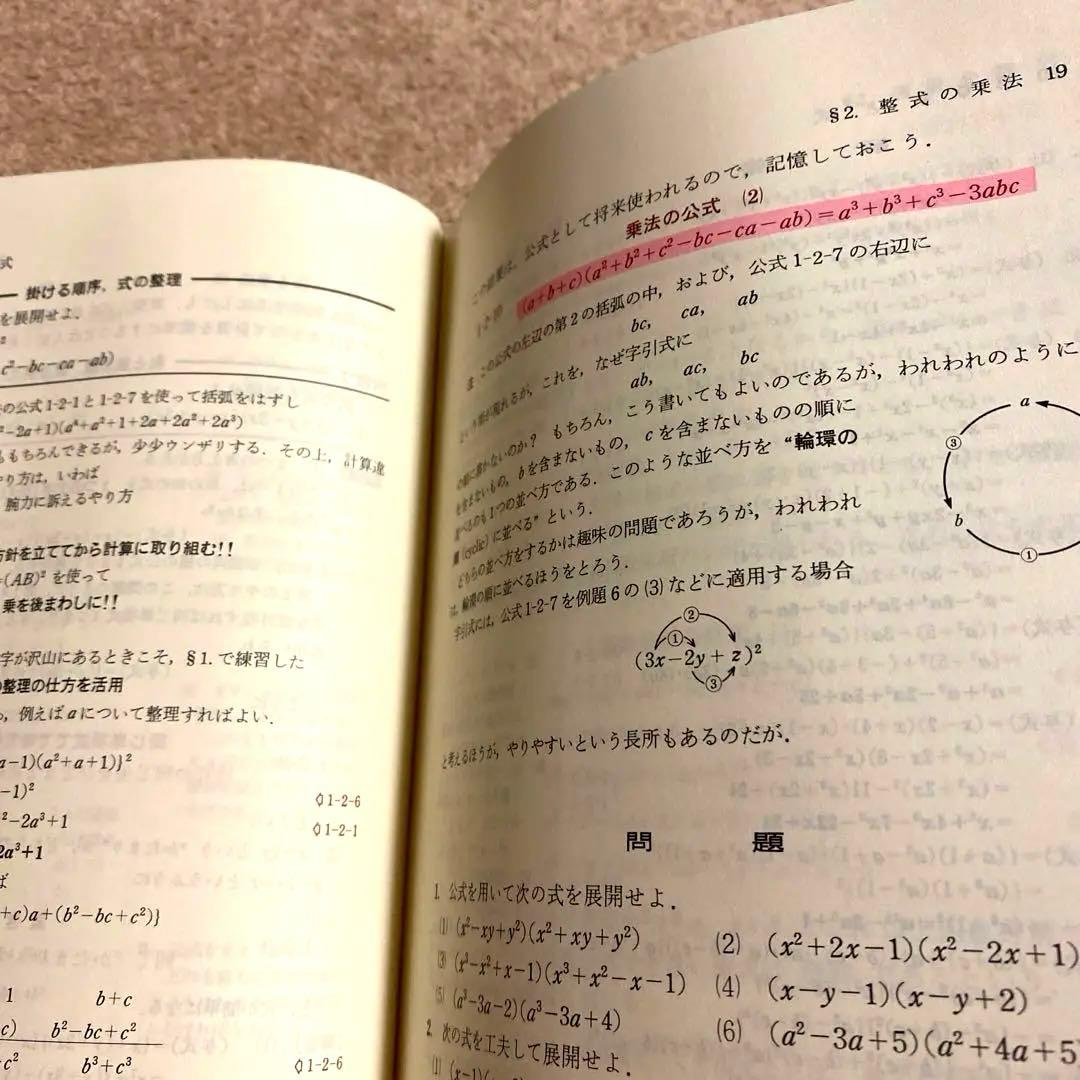 式
掛ける順序，式の整理
を展開せよ．
c²－bc－ca－ab)
の公式1-2-1と1-2-7を使って括弧をはずし
²－2a＋1)(a⁴＋a²＋1＋2a＋2a²＋2a³)
ももちろんできるが，少少ウンザリする．その上，計算違
やり方は，いわば
腕力に訴えるやり方
方針を立ててから計算に取り組む!!
＝(AB)² を使って
乗を後まわしに!!
字が沢山にあるときこそ，§1．で練習した
の整理の仕方を活用
，例えばaについて整理すればよい．
a－1)(a²＋a＋1)}²
－1)²
◊1-2-6
²－2a³＋1
◊1-2-1
2a³＋1
ば
＋c)a＋(b²－bc＋c²)}
1 b＋c
c) b²－bc＋c²
＋c² b³＋c³
◊1-2-6
§2．整式の乗法 19
この結果は，公式として将来使われるので，記憶しておこう．
乗法の公式 (2)
1-2-10 (a＋b＋c)(a²＋b²＋c²－bc－ca－ab)＝a³＋b³＋c³－3abc
注 この公式の左辺の第2の括弧の中，および，公式1-2-7の右辺に
bc, ca, ab
という項が現れるが，これを，なぜ字引式に
ab, ac, bc
の順に書かないのか？ もちろん，こう書いてもよいのであるが，われわれのように
を含まないもの，bを含まないもの，cを含まないものの順に
並べるのも1つの並べ方である．このような並べ方を “輪環の
順 (cyclic) に並べる” という．
どちらの並べ方をするかは趣味の問題であろうが，われわれ
は，輪環の順に並べるほうをとろう．
字引式には，公式1-2-7を例題6の(3)などに適用する場合
a
③
b
①
②
①
(3x－2y＋z)²
③
と考えるほうが，やりやすいという長所もあるのだが．
問 題
1. 公式を用いて次の式を展開せよ．
(1) (x²－xy＋y²)(x²＋xy＋y²)
(2) (x²＋2x－1)(x²－2x＋1)
(3) (x³－x²＋x－1)(x³＋x²－x－1)
(4) (x－y－1)(x－y＋2)
(5) (a³－3a－2)(a³－3a＋4)
(6) (a²－3a＋5)(a²＋4a＋5)
2. 次の式を工夫して展開せよ．
(1) (x－1)(x